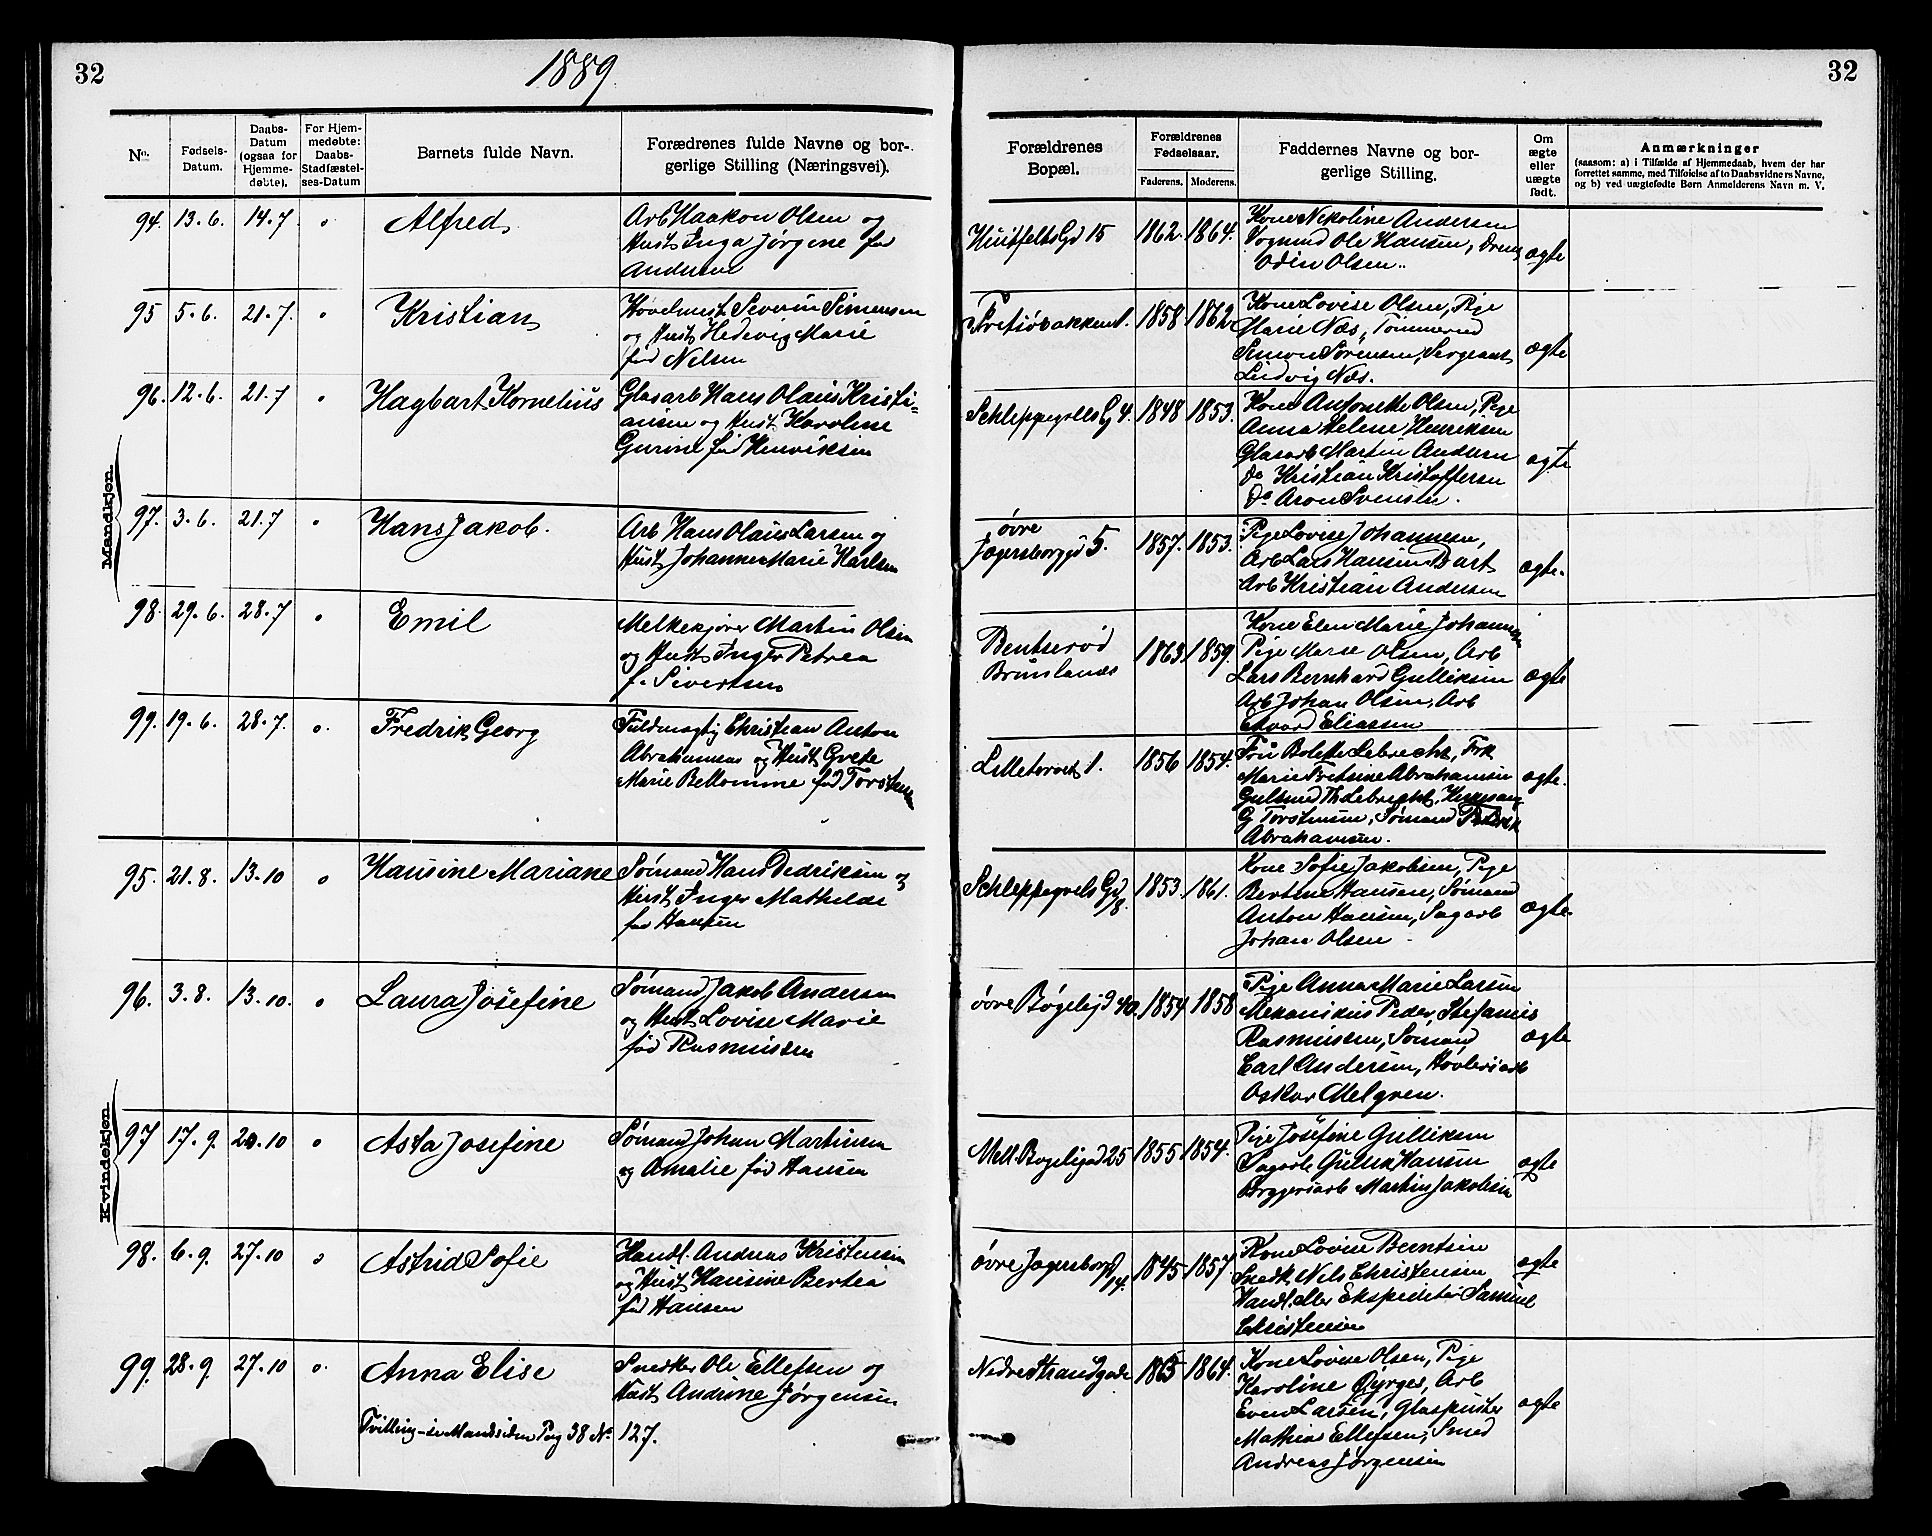 32
1889.
No.
Fødsels-
Datum.
Daabs-
Datum
(ogsaa for
Hjemme-
døbte).
For Hjem-
medøbte:
Daabs-
Stadfæstel-
ses-Datum
Barnets fulde Navn.
Forædrenes fulde Navne og bor-
gerlige Stilling (Næringsvei).
Mandkjøn.
94. 13.6. 14.7 " Alfred
Arb Haakon Olsen og
Hust. Inga Jørgine fød
Andersen
95 5.6. 21.7. " Kristian
Høvelmest. Severin Simensen
og Hust. Hedevig Marie
fød Nelsen
96. 12.6. 21.7 " Hagbart Kornelius
Glasarb Hans Olaus Kristi-
ansen og Hust. Karoline
Gurine fød Henriksen
97. 3.6. 21.7 " Hans Jakob.
Arb Hans Olaus Larsen og
Hust. Johanne Marie Karlsen
98. 29.6. 28.7 " Emil
Melkekjører Martin Olsen
og Hust. Inger Petrea
f. Sivertsen
99. 19.6. 28.7. o. Fredrik Georg
Fuldmægtig Christian Anton
Abrahamsen og Hust. Grete
Marie Bellomme fød Torstensen
Kvindekjøn
95. 21.8. 13.10 o Hansine Mariane
Sømand Hans Dedriksen og
Hust. Inger Mathilde
fød Hansen
96. 3.8. 13.10. o Laura Josefine
Sømand Jakob Andersen
og Hust. Lovise Marie
fød Rasmussen
97 17.9. 20.10 o Asta Josefine
Sømand Johan Martinsen
og Amalie fød Hansen
98. 6.9. 27.10 o Astrid Sofie
Handl. Andreas Kristensen
og Hust. Hansine Bertea
fød Hansen
99. 28.9. 27.10 o. Anna Elise
Snedker Ole Ellefsen og
Hust. Andrine Jørgensen
Tvilling-se Mandsiden Pag 38 No 127.
32
Forældrenes
Bopæl.
Forældrenes
Fødselsaar.
Faderens. Moderens.
Faddernes Navne og bor-
gerlige Stilling.
Om
ægte
eller
uægte
født.
Anmærkninger
(saasom: a) i Tilfælde af Hjemmedaab, hvem der har
forrettet samme, med Tilføielse af to Daabsvidners Navne,
og b) ved uægtefødte Børn Anmelderens Navn m. V.
Huitfelts Gd 15 1862. 1864. ægte
Kone Nikoline Andersen
Vognmd Ole Hansen, Dreng
Odin Olsen.
1. 1858 1862. ægte
Kone Lovise Olsen, Pige
Marie Næs, Tømmermd
Simon Sørensen, Sergeant
Ludvig Næs.
Schleppegrells Gd 4. 1848 1853. ægte
Kone Antonette Olsen, Pige
Anna Helene Henriksen
Glasarb Martin Andersen
Do Kristian Kristoffersen
Do Aron Svensen.
øvre
Jegersborggd 5. 1857. 1853. ægte.
Pige Lovise Johannesen,
Arb Lars Hansen Bart
Arb Kristian Andersen
Bentserød
Brunlanes 1863. 1859. ægte
Kone Elen Marie Johannesen
Pige Marie Olsen, Arb
Lars Bernhard Gulliksen
Arb Johan Olsen, Arb
Edvard Eliassen
Lilletorvet 1. 1856 1854. ægte.
Fru Bolette Lebrecht, Frk
Marie Abrahamsen
Gulsmed Th Lebrecht,
G Torstensen, Sømand
Abrahamsen.
Schleppegrels Gd 8. 1853. 1861. ægte.
Kone Sofie Jakobsen, Pige
Bertine Hansen, Sømand
Anton Hansen, Sagarb
Johan Olsen
øvre Bøgeligd 40. 1854 1858 ægte
Pige Anna Marie Larsen
Mekanikus Peder Stefanus
Rasmussen, Sømand
Carl Andersen, Høvleriarb
Oskar Melgren.
Mell. Bøgeligad 25 1855 1854. ægte
Pige Josefine Gulliksen
Sagarb Gullik Hansen
Bryggeriarb Martin Jakobsen
øvre Jegersborggd 14. 1845 1857. ægte
Kone Lovise Berntsen
Snedk Nils Christensen
Handl. Ekspeditør Samuel
Christensen
Nedre Strandgade 1865 1864. ægte
Kone Lovise Olsen, Pige
Karoline Arb
Even Larsen, Glaspuster
Mathias Ellefsen, Smed
Andreas Jørgensen